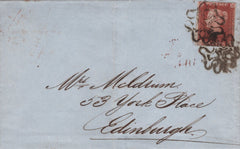 Mrs. Meldrum
53 York Place
Edinburgh.